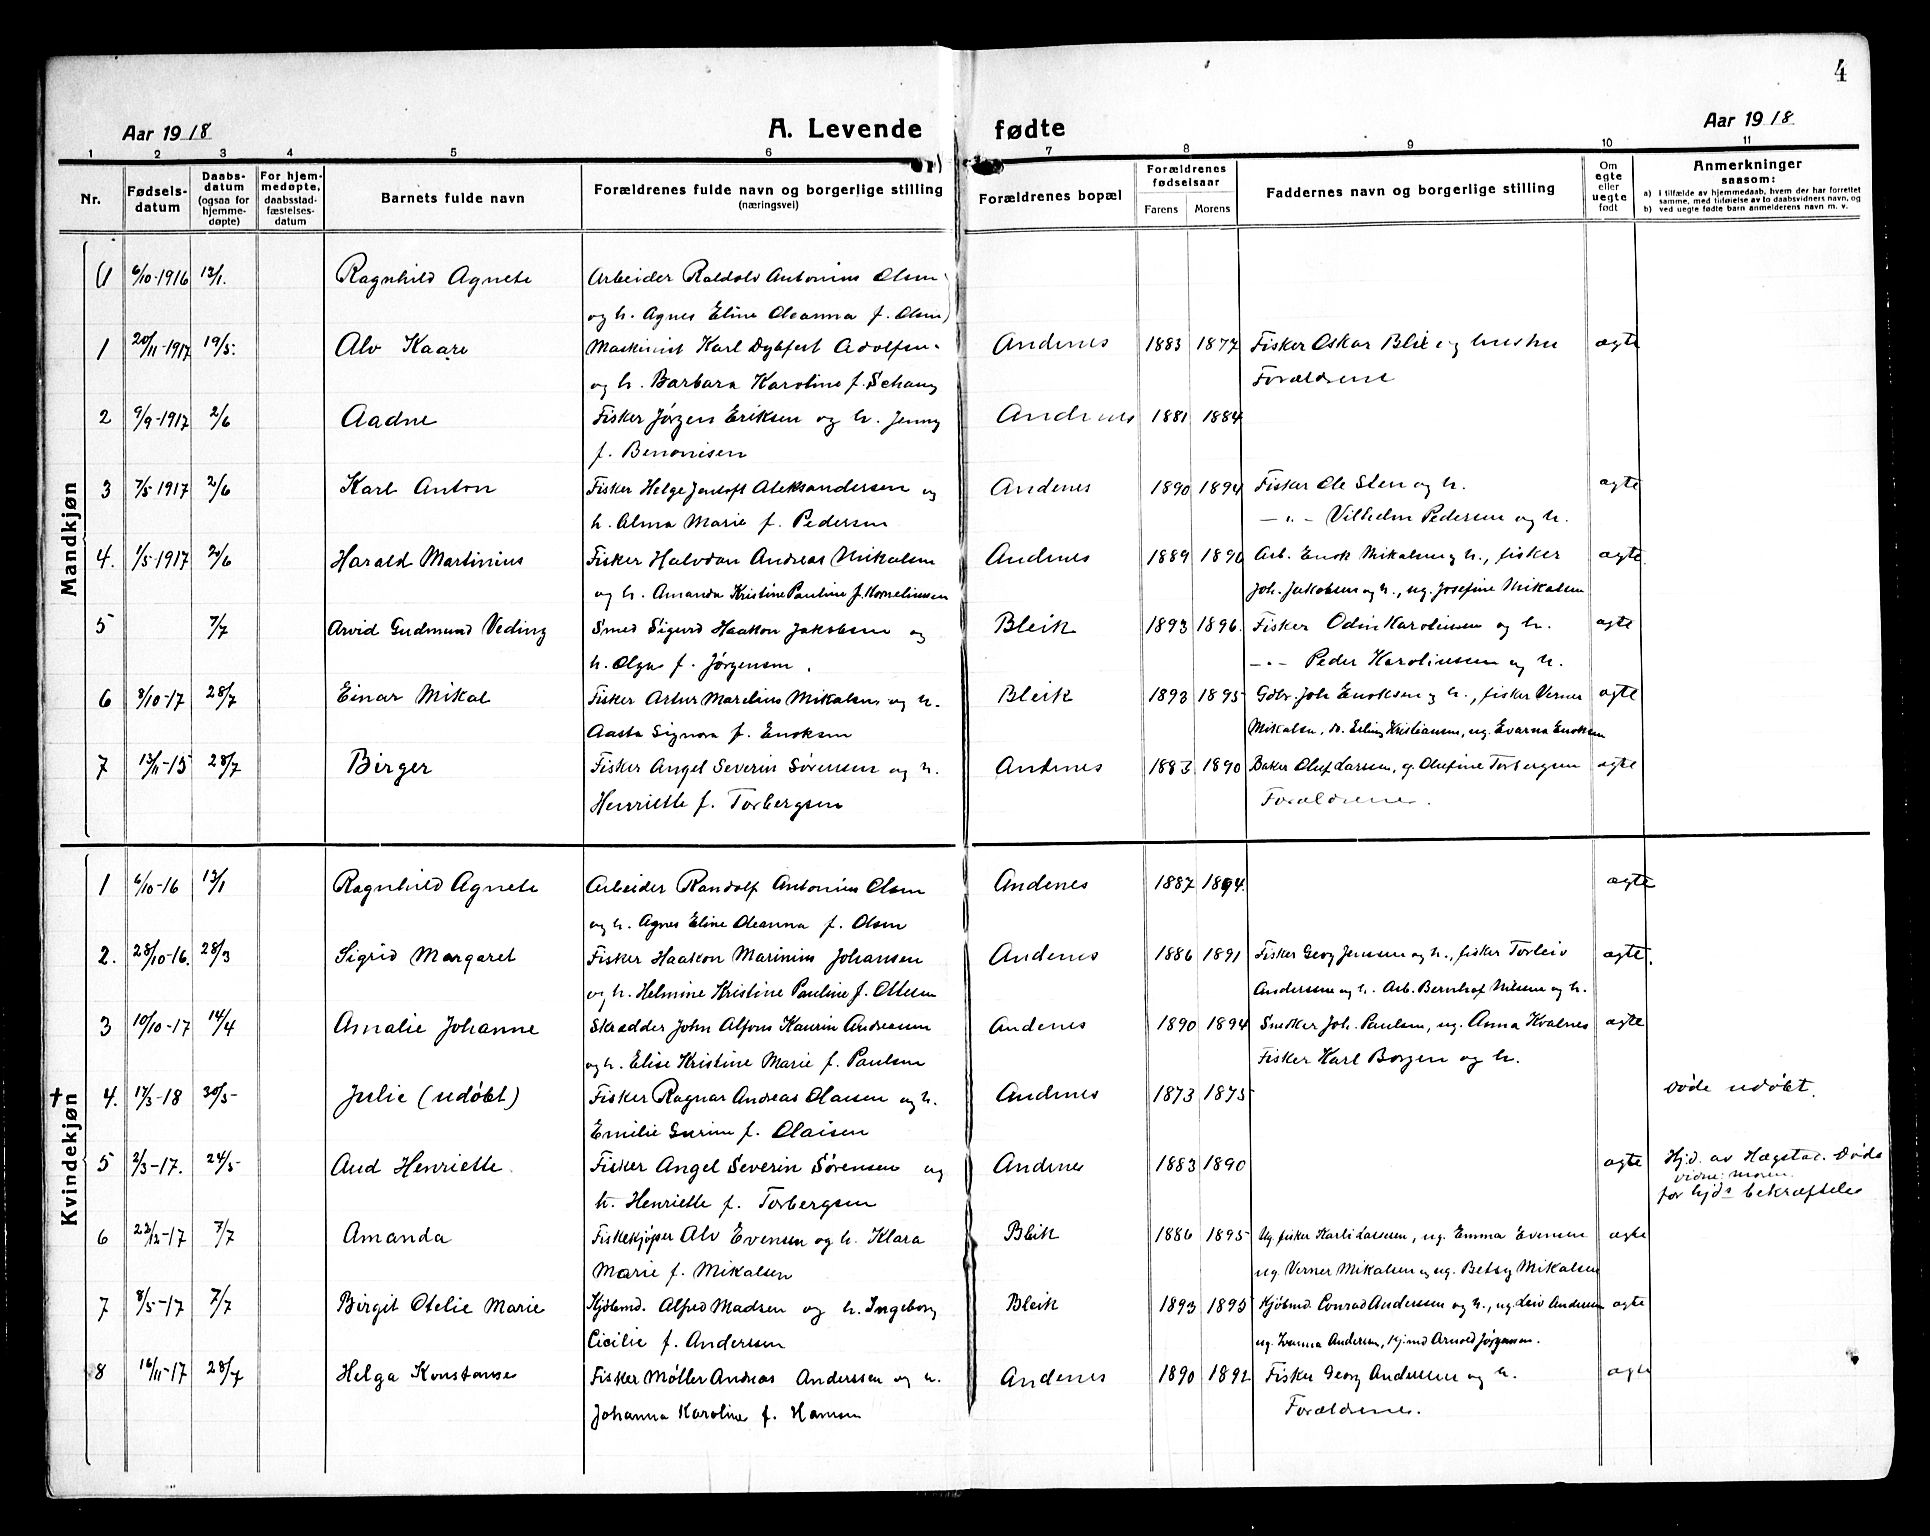 4
Aar 1918 A. Levende fødte Aar 1918
1 2 3 4 5 6 7 8 9 10 11
Nr. Fødselsdatum Daabsdatum (ogsaa for hjemmedøpte) For hjemmedøpte, daabsstadfæstelsesdatum Barnets fulde navn Forældrenes fulde navn og borgerlige stilling (næringsvei) Forældrenes bopæl Forældrenes fødselsaar Farens Morens Faddernes navn og borgerlige stilling Om egte eller uegte født Anmerkninger saasom:
a) I tilfælde av hjemmedaab, hvem der har forrettet samme, med tilføielse av to daabsvidners navn, og
b) ved uegte fødte barn anmelderens navn m. v.
Mandkjøn
6/10-1916 13/1. Ragnhild Agnete Arbeider Antonius Olsen
og h. Agnes Eline Oleanna f. Olsen)
1 20/11-1917 19/5. Alv Kaare Maskinist Karl Dybfest Adolfsen Andenes 1883 1877 Fisker Oskar Blix og hustru egte
og h. Barbara Karoline f. Schang Forældrene
2 9/9-1917 2/6 Aadne Fisker Jørgen Eriksen og h. Jenny Andenes 1881 1884
f. Benonisen
3 7/5 1917 2/6 Karl Anton Fisker Helge Jentoft Aleksandersen og Andenes 1890 1894 Fisker Ole Sten og h. egte
h. Alma Marie f. Pedersen — " — Vilhelm Pedersen og h.
4. 1/5-1917 2/6 Harald Martinius Fisker Halvdan Andreas Mikalsen Andenes 1889 1890 Arb. Enok Mikalsen og h., fisker egte
og h. Amanda Kristine Pauline f. Korneliussen Joh. Jakobsen og h., ug. Josefine Mikalsen
5 7/7 Arvid Gudmund Veding Smed Sigurd Haakon Jakobsen og Bleik 1893 1896. Fisker Odin Karolinssen og h. egte
h. Olga f. Jørgensen. — " — Peder Karolinssen og h.
6 8/10-17 28/7 Einar Mikal Fisker Artur Marelius Mikalsen og h. Bleik 1893 1895 Gdbr. Joh Enoksen og h., fisker Verner egte
Aasta Signora f. Enoksen Mikalsen, Erling Kristiansen, ug. Evarna Enoksen
7 13/11-15 28/7 Birger Fisker Angel Severin Sørensen og h. Andenes 1883 1890 Baker Oluf Larsen, Olufine Torbergsen egte
Henriette f. Torbergsen Forældrene.
Kvindekjøn
1 6/10-16 13/1 Ragnhild Agnete Arbeider Randolf Antonius Olsen Andenes 1887 1894. egte
og h. Agnes Eline Oleanna f. Olsen
2. 28/10-16. 28/3 Sigrid Margaret Fisker Haakon Marinius Johansen Andenes 1886 1891 Fisker Georg Jenssen og h., fisker Torleiv egte.
og h. Helmine Kristine Pauline f. Ottesen Anderssen og h. Arb. Bernhof Nilsen og h.
3 10/10-17 14/4 Amalie Johanne Skrædder John Alfons Kaurin Andreasen Andenes 1890 1894 Snedker Joh. Paulsen, ug. Anna Kvalnes egte
og h. Elise Kristine Marie f. Paulsen Fisker Karl Borgen og h.
† 4. 17/3-18 30/5- Julie (udøbt) Fisker Ragnar Andreas Olaisen og h. Andenes 1873 1875 Døde udøbt.
Emilie Gurine f. Olaisen
5 2/3-17. 24/5- Aud Henriette. Fisker Angel Severin Sørensen og Andenes 1883 1890 egte Hjd. av Hægstad. Døde
h. Henriette f. Torbergsen vidne: moren
før hjds bekræftelse
6 22/12-17 7/7 Amanda Fiskekjøper Alv Evensen og h. Klara Bleik 1886 1895 Ug. fisker Karli Larsen, ug. Emma Evensen egte
Marie f. Mikalsen ug. Verner Mikalsen og ug. Betsy Mikalsen
7 8/5-17 7/7 Birgit Otelie Marie Kjøbmd. Alfred Madsen og h. Ingeborg Bleik 1893 1895 Kjøbmd. Conrad Anderssen og h., ug. Leiv Andersen egte
Cicilie f. Anderssen ug. Andersen, Arnold Jørgensen.
8 16/11-17 28/7 Helga Konstanse Fisker Møller Andreas Anderssen og h. Andenes 1890 1892 Fisker Georg Anderssen og h. egte
Johanna Karoline f. Hansen Forældrene.